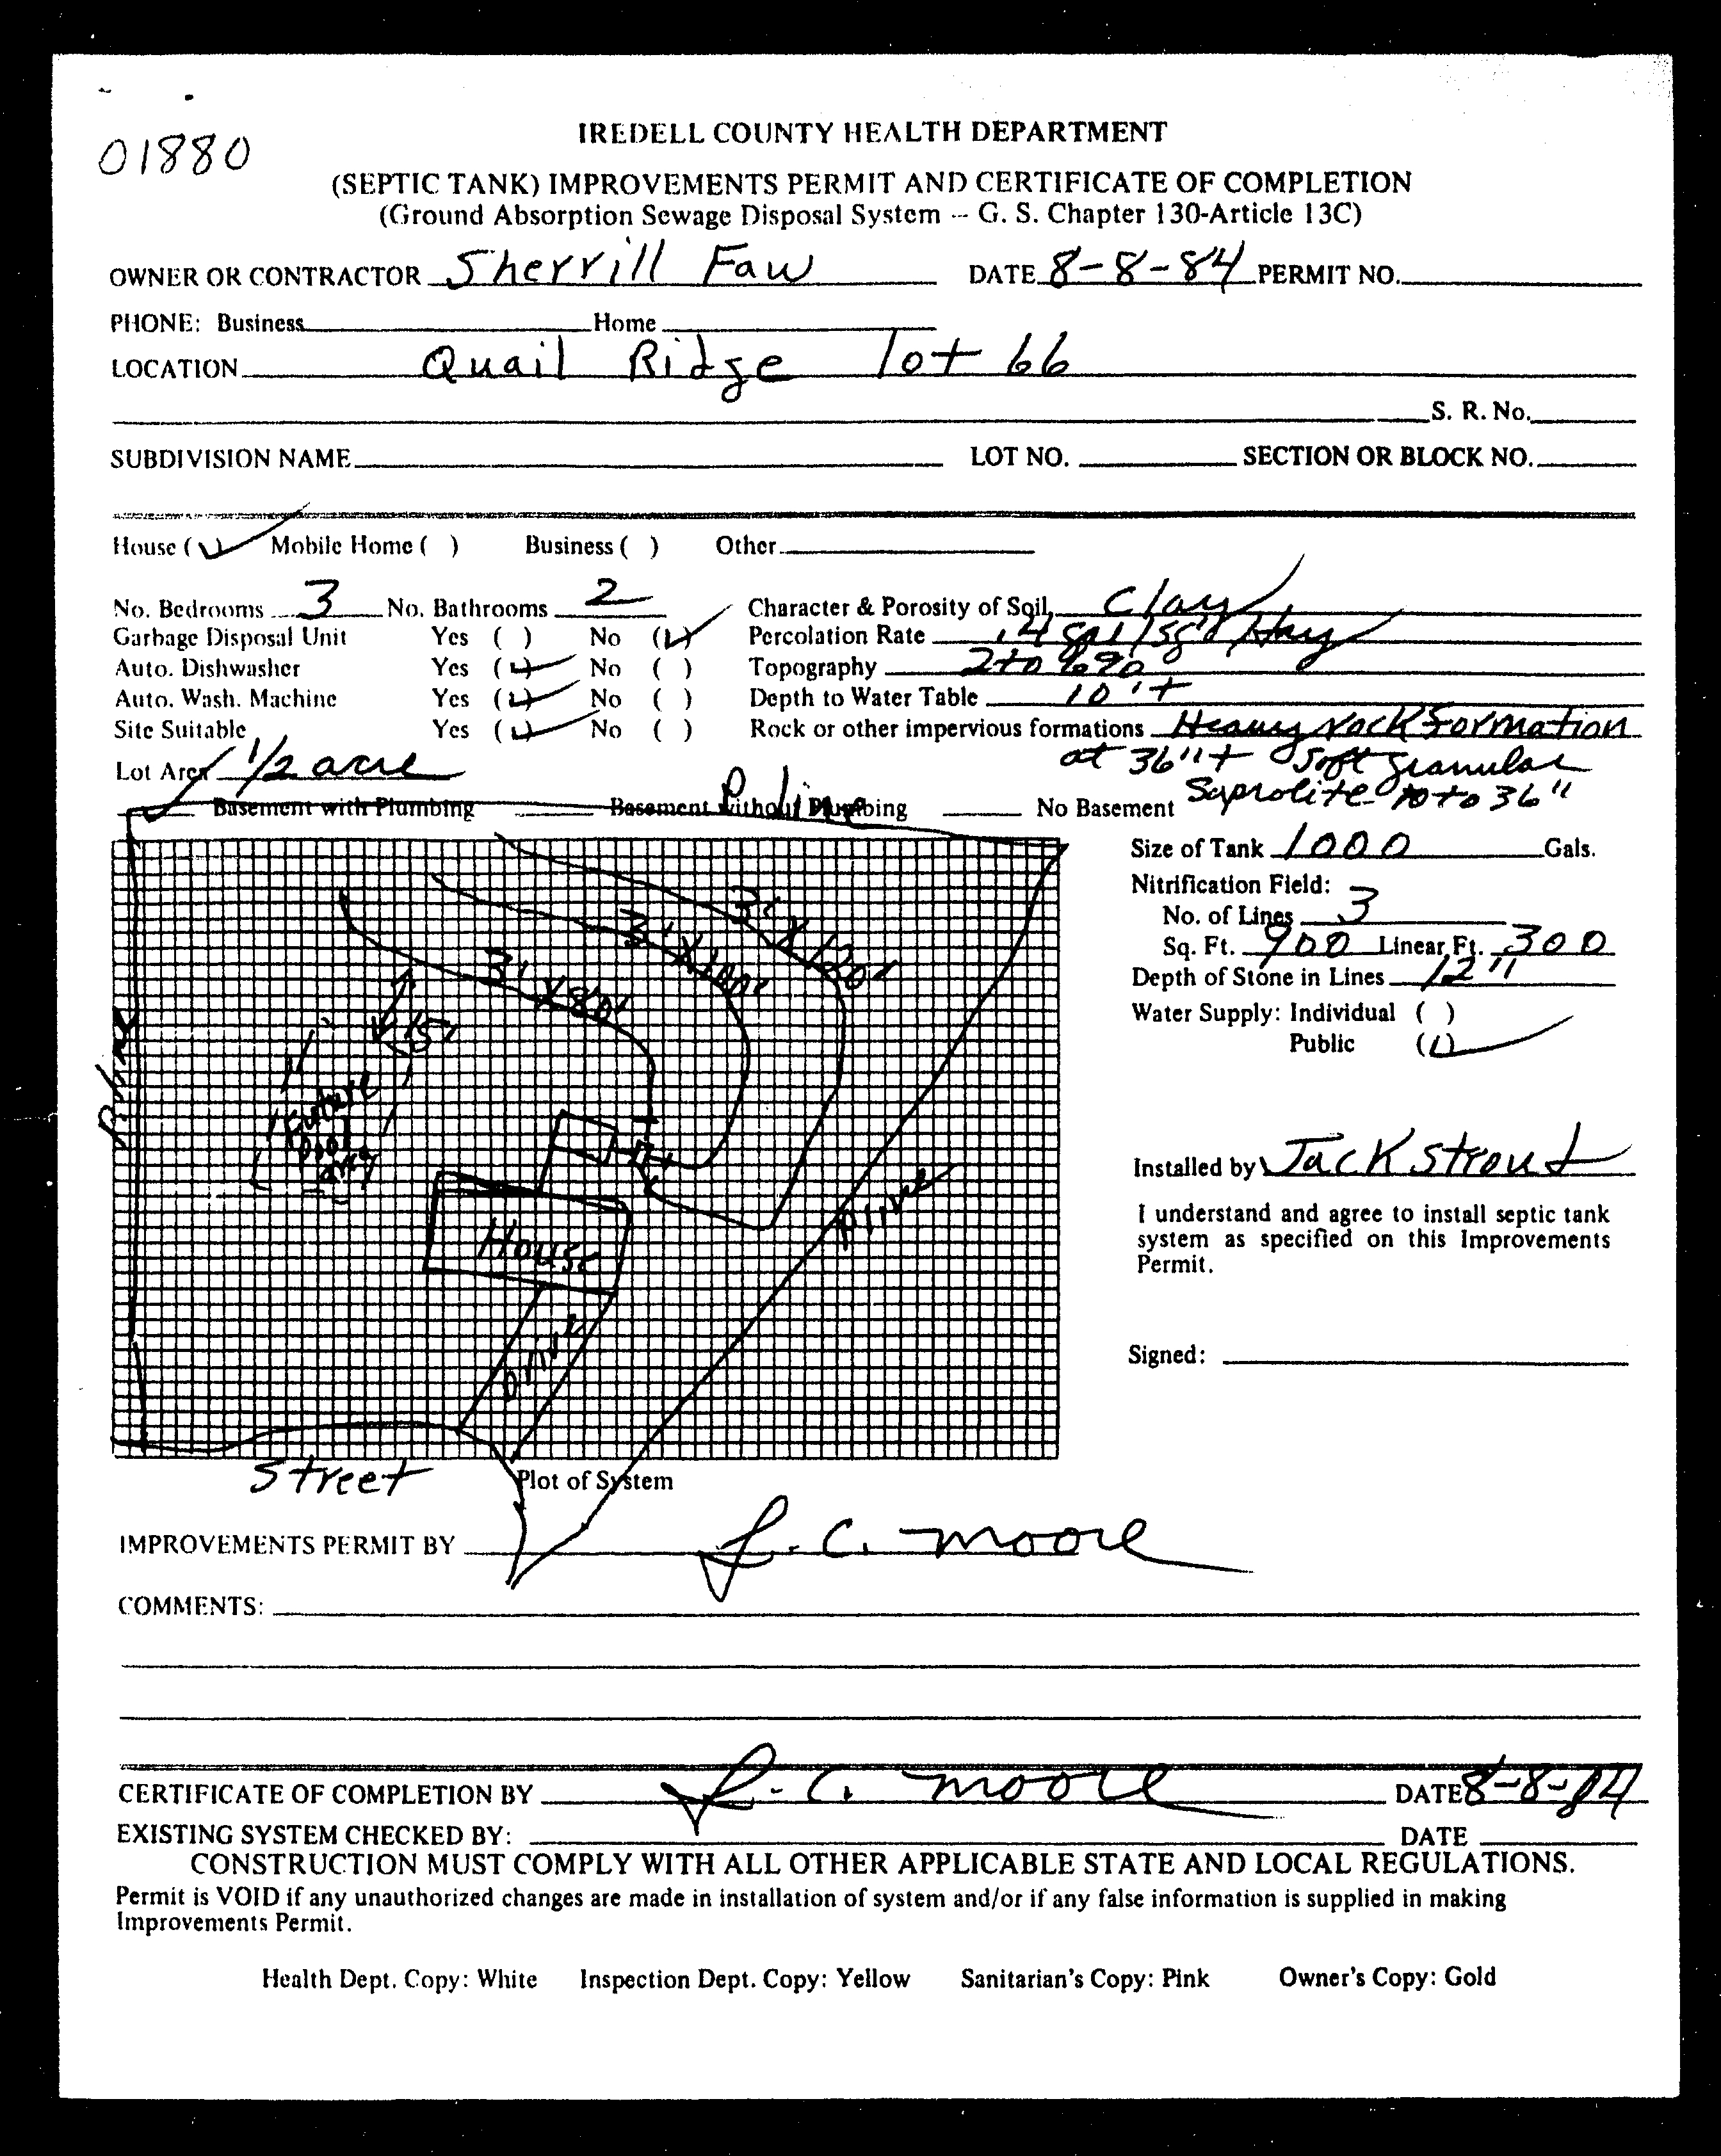 01880
IREDELL COUNTY HEALTH DEPARTMENT
(SEPTIC TANK) IMPROVEMENTS PERMIT AND CERTIFICATE OF COMPLETION
(Ground Absorption Sewage Disposal System -- G. S. Chapter 130-Article 13C)
OWNER OR CONTRACTOR Sherrill Faw DATE 8-8-84 PERMIT NO.
PHONE: Business Home
LOCATION Quail Ridge lot 66
S. R. No.
SUBDIVISION NAME LOT NO. SECTION OR BLOCK NO.
House ( ) Mobile Home ( ) Business ( ) Other
No. Bedrooms 3 No. Bathrooms 2 Character & Porosity of Soil Clay
Garbage Disposal Unit Yes ( ) No ( ) Percolation Rate .4 gal/sq'/day
Auto. Dishwasher Yes ( ) No ( ) Topography 2 to 6%
Auto. Wash. Machine Yes ( ) No ( ) Depth to Water Table 10'+
Site Suitable Yes ( ) No ( ) Rock or other impervious formations Heavy rock formation
Lot Area 1/2 acre at 36"+ Soft granular
Saprolite to 36"
Basement with Plumbing Basement without Plumbing No Basement
P. line
Size of Tank 1000 Gals.
Nitrification Field:
No. of Lines 3
Sq. Ft. 900 Linear Ft. 300
Depth of Stone in Lines 12"
Water Supply: Individual ( )
Public ( )
3' X 120'
3' X 100'
3' X 80'
15'
P. line
Future
pool
area
House
P. line
Drive
Installed by Jack Strout
I understand and agree to install septic tank
system as specified on this Improvements
Permit.
Signed:
Street
Plot of System
IMPROVEMENTS PERMIT BY L. C. Moore
COMMENTS:
CERTIFICATE OF COMPLETION BY L. C. Moore DATE 8-8-84
EXISTING SYSTEM CHECKED BY: DATE
CONSTRUCTION MUST COMPLY WITH ALL OTHER APPLICABLE STATE AND LOCAL REGULATIONS.
Permit is VOID if any unauthorized changes are made in installation of system and/or if any false information is supplied in making
Improvements Permit.
Health Dept. Copy: White Inspection Dept. Copy: Yellow Sanitarian's Copy: Pink Owner's Copy: Gold